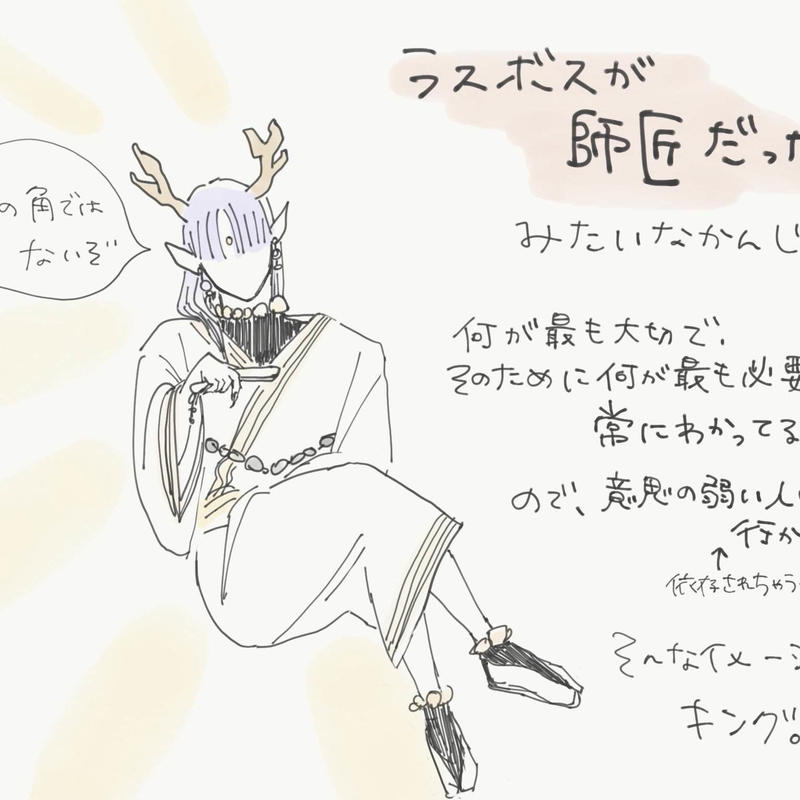 ラスボスが
師匠だった
みたいなかんじ
何が最も大切で、
そのために何が最も必要
常にわかってる
ので、意思の弱い人
行か
↑
依存されちゃう
そんなイメージ
キング。
の角では
ないぞ